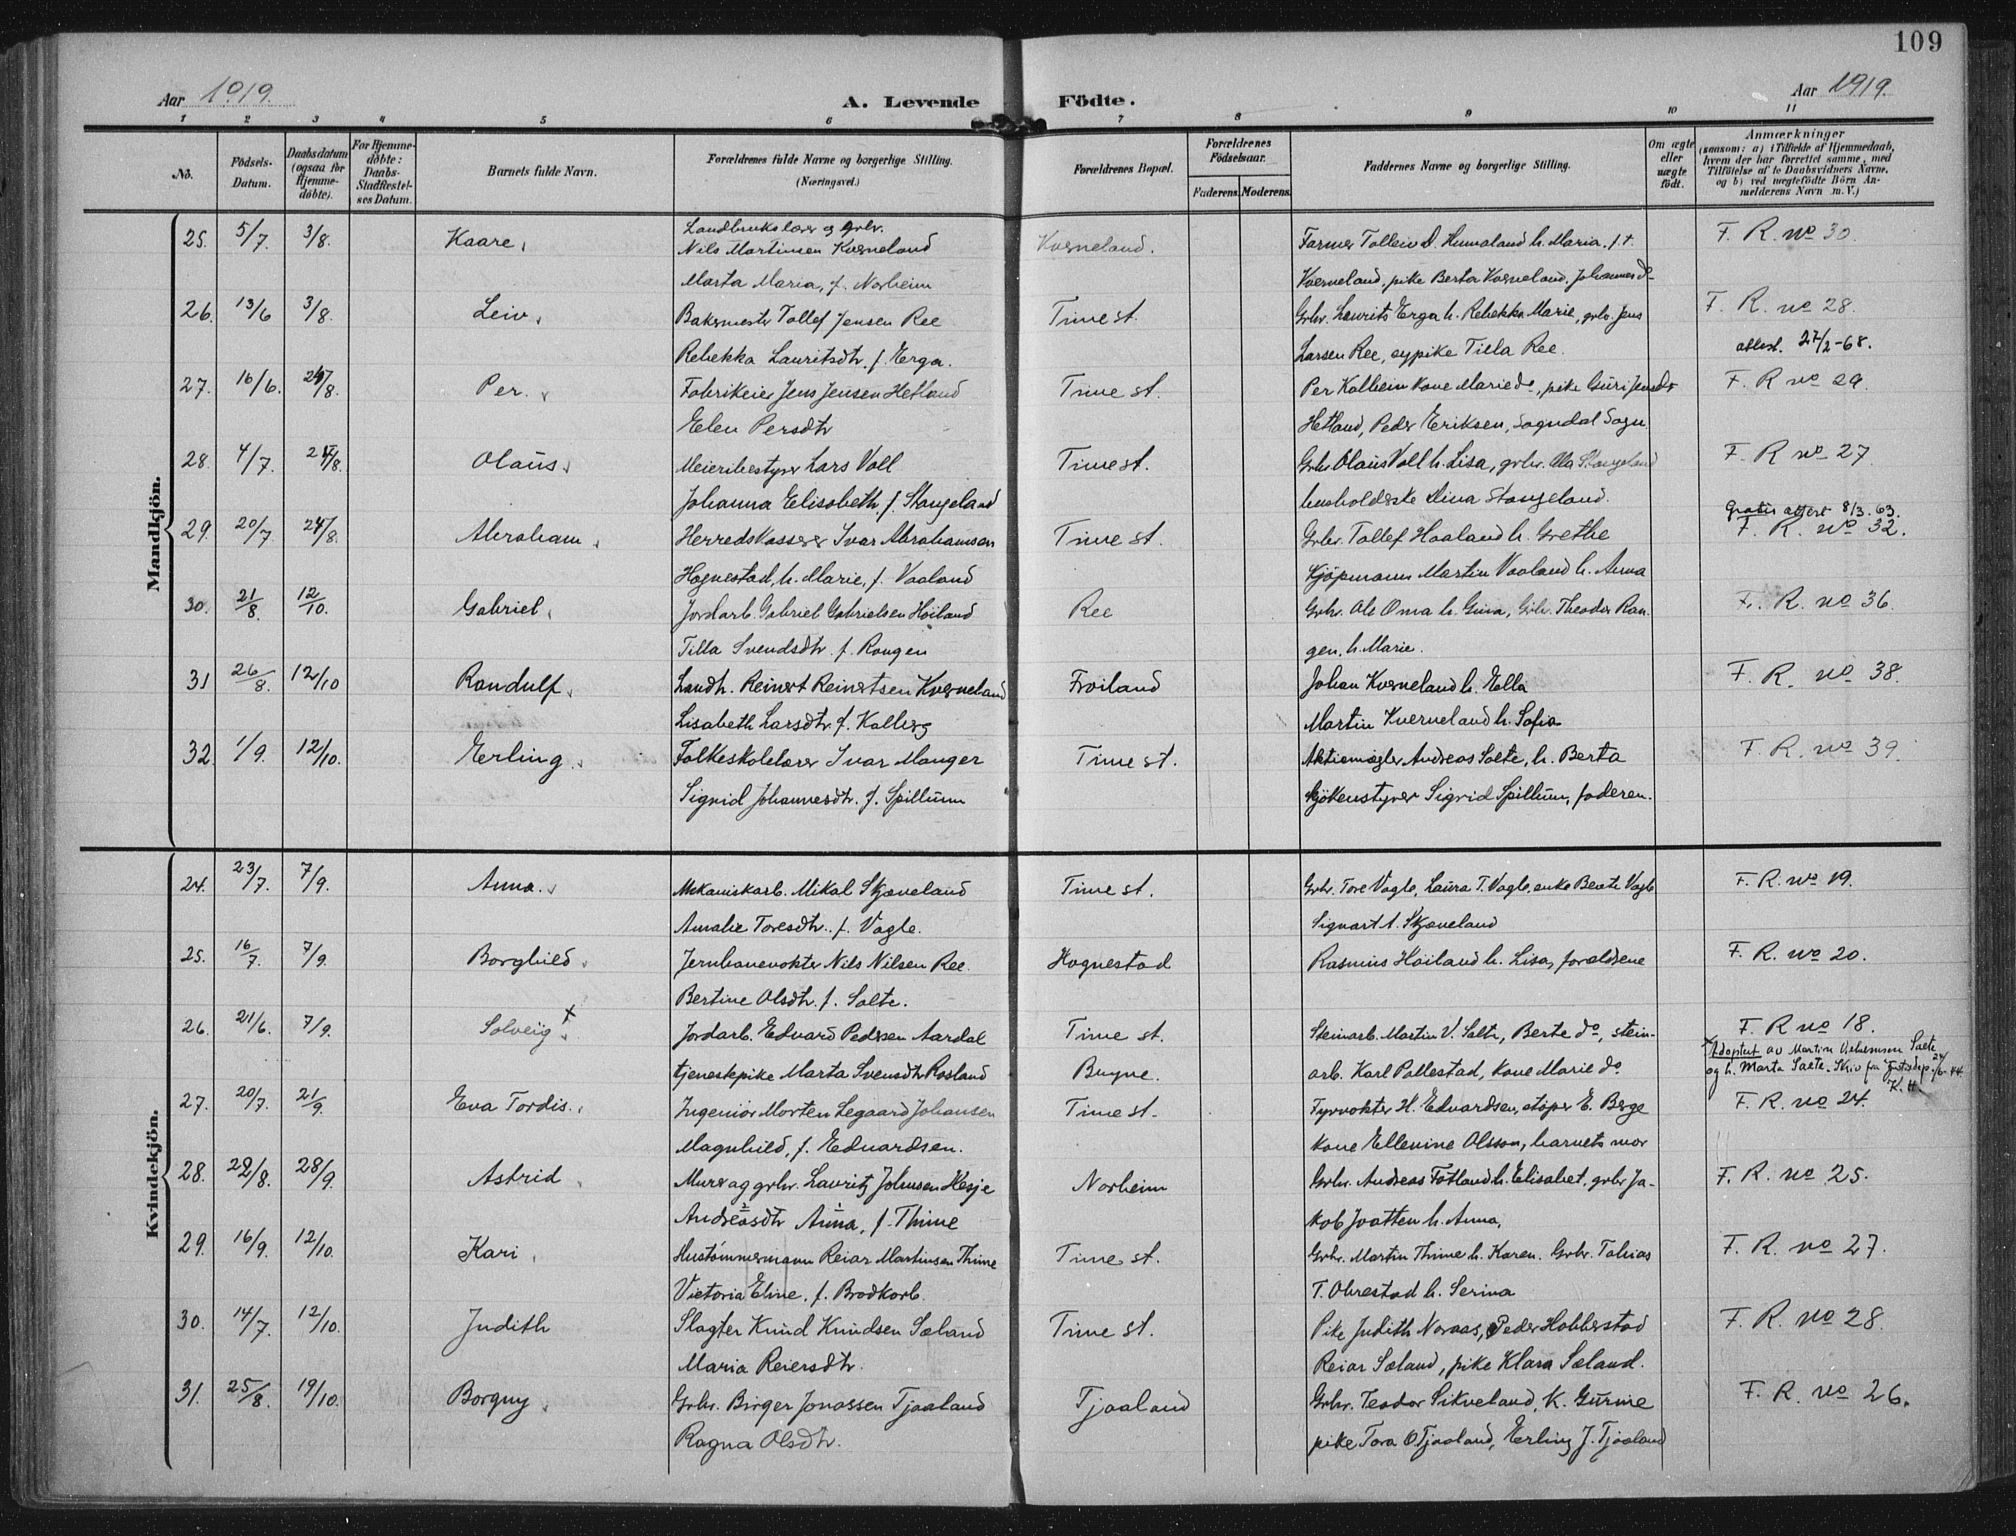 109
Aar 1919.
A. Levende Födte.
Aar 1919.
1 2 3 4 5 6 7 8 9 10 11
No.
Födsels-Datum.
Daabsdatum (ogsaa for Hjemmedöbte).
For Hjemmedöbte: Daabs-Stadfæstelses Datum.
Barnets fulde Navn.
Forældrenes fulde Navne og borgerlige Stilling. (Næringsvei.)
Forældrenes Bopæl.
Forældrenes Födselsaar.
Faderens. Moderens.
Faddernes Navne og borgerlige Stilling.
Om ægte eller uægte födt.
Anmærkninger
(saasom: a) i Tilfælde af Hjemmedaab, hvem der har forrettet samme, med Tilföielse af to Daabsvidners Navne, og b) ved uægtefödte Börn Anmelderens Navn m. V.)
Mandkjön.
25. 5/7 3/8. Kaare. Landbrukslærer og grbr. Kverneland. Farmer Tolleiv D. Humaland h. Maria. f. t. F. R. no 30.
Nils Martinsen Kverneland
Marta Maria, f. Norheim Kverneland, pike Berta Kverneland, Johannes do
26. 13/6 3/8. Leiv. Bakermester Tollef Jensen Ree Time st. Grbr. Laurits Erga h. Rebekka Marie, grbr. Jens F. R. no 28.
Rebekka Lauritsdtr. f. Erga. Larsen Ree, sypike Tilla Ree. attest. 27/2-68.
27. 16/6. 24/8. Per. Fabrikeier Jens Jensen Hetland Time st. Per Kalheim kone Marie do, pike Guri Jensdtr F. R no 29.
Elen Persdtr Hetland, Peder Eriksen, Sogndal Sogn.
28. 4/7. 24/8. Olaus. Meieribestyrer Lars Voll Time st. Grbr Olaus Voll h. Lisa, grbr. Ola Stangeland F. R no 27.
Johanna Elisabeth. f. Stangeland husholderske Dina Stangeland. Gratis attest 8/3. 63.
29. 20/7 24/8. Abraham. Herredskasserer Ivar Abrahamsen Time st. Grbr. Tollef Haaland h. Grethe F. R. no 32.
Hognestad, h. Marie, f. Vaaland Kjöpmann Martin Vaaland h. Anna
30. 21/8. 12/10. Gabriel. Jordarb. Gabriel Gabrielsen Höiland Ree Grbr. Ole Oma h. Gina, Grbr. Theodor Ran- F. R. no 36.
Tilla Svendsdtr. f. Rangen gen. h. Marie.
31 26/8. 12/10 Randulf. Landh. Reinert Reinertsen Kverneland Fröiland Johan Kverneland h. Ella F. R. no 38.
Lisabeth Larsdtr. f. Kalberg Martin Kverneland h. Sofia
32. 1/9. 12/10. Erling. Folkeskolelærer Ivar Manger Time st. Aktiemægler Andreas Salte, h. Berta F. R. no 39.
Sigrid Johannesdtr. f. Spillum kjökenstyrer Sigrid Spillum, faderen.
Kvindekjön.
24. 23/7. 7/9. Anna. Mekaniskarb. Mikal Skjæveland Time st. Grbr. Tore Vagle, Laura T. Vagle, enke Berte Vagle F. R. no 19.
Amalie Toresdtr. f. Vagle. Sigvart A. Skjæveland
25. 16/7. 7/9. Borghild. Jernbanevokter Nils Nilsen Ree. Hognestad Rasmus Höiland h. Lisa, foreldrene F. R. no 20.
Bertine Olsdtr. f. Salte.
26. 21/6. 7/9. Solveig x Jordarb. Edvard Pedersen Aardal Time st. Steinarb. Martin V. Salte, Berte do, stein- F. R no 18.
tjenestepike Marta Svensdtr Rosland Bryne. arb. Karl Pollestad, kone Marie do x Adoptert av Martin Vilhelmsen Salte og h. Marta Salte. Skriv fra Justisdep. 24/6-44 K. H.
27. 20/7. 21/9. Eva Tordis. Ingeniör Morten Legaard Johansen Time st. Fyrvokter H. Edvardsen, stöper E. Berge F. R. no 24.
Magnhild, f. Edvardsen. kone Ellevine Olsson, barnets mor
28. 29/8. 28/9. Astrid Murer og grbr. Lauritz Johnsen Hesje Norheim Grbr. Andreas Fotland h. Elisabet, grbr Ja- F. R. no 25.
Andreasdtr Anna, f. Thime kob Joatten h. Anna,
29. 16/9. 12/10. Kari. Hustömmermann Reiar Martinsen Thime Time st. Grbr. Martin Thime h. Karen. Grbr. Tobias F. R. no 27.
Victoria Eline. f. Brodkorb. T. Obrestad h. Serina
30. 14/7. 12/10. Judith Slagter Knud Knudsen Sæland Time st. Pike Judith Noraas, Peder Hobberstad F. R. no 28.
Maria Reiersdtr. Reiar Sæland, pike Klara Sæland.
31. 25/8. 19/10. Borgny. Grbr. Birger Jonassen Tjaaland Tjaaland Grbr. Teodor Sikveland, K. Gurine F. R. no 26.
Ragna Olsdtr. pike Tora O. Tjaaland, Erling J. Tjaaland